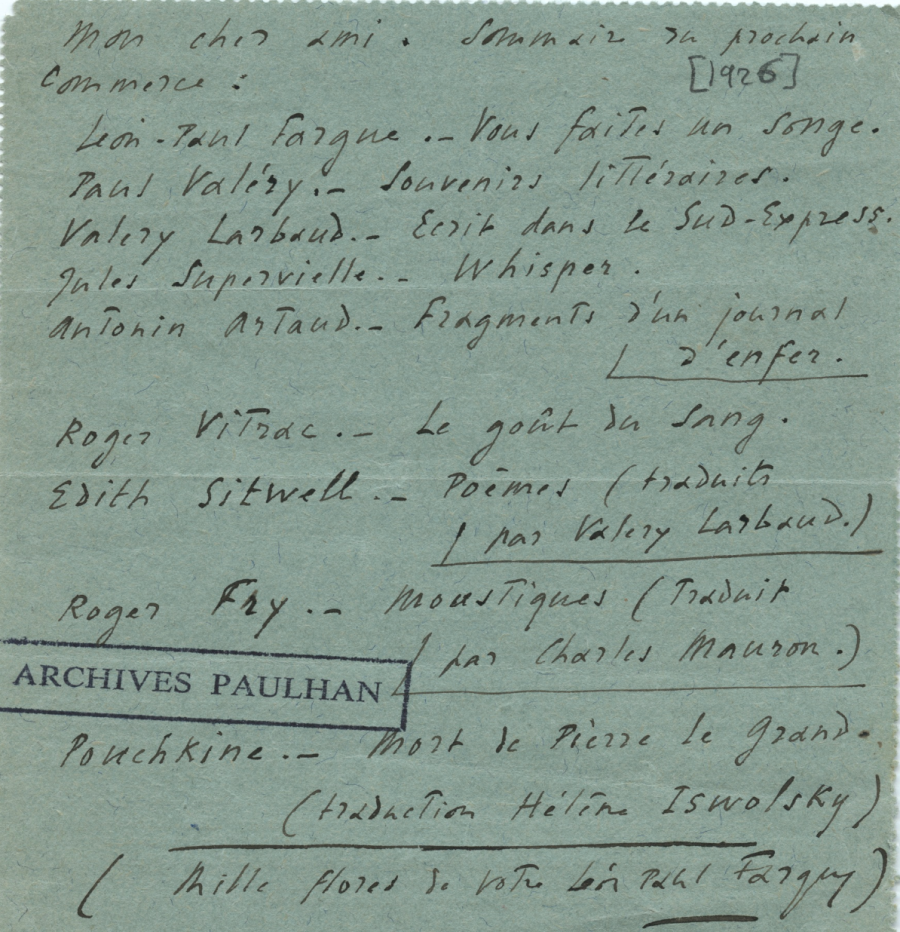 Mon cher ami. Sommaire du prochain
Commerce :
[1926]
Léon-Paul Fargue. – Vous faites un songe.
Paul Valéry. – Souvenirs littéraires.
Valery Larbaud. – Ecrit dans le Sud-Express.
Jules Supervielle. – Whisper.
Antonin Artaud. – Fragments d'un journal
d'enfer.
Roger Vitrac. – Le goût du Sang.
Edith Sitwell. – Poèmes (traduits
par Valery Larbaud.)
Roger Fry. – Moustiques (Traduit
par Charles Mauron.)
ARCHIVES PAULHAN
Pouchkine. – Mort de Pierre le Grand.
(traduction Hélène Iswolsky)
( Mille flores de votre Léon Paul Farguy)